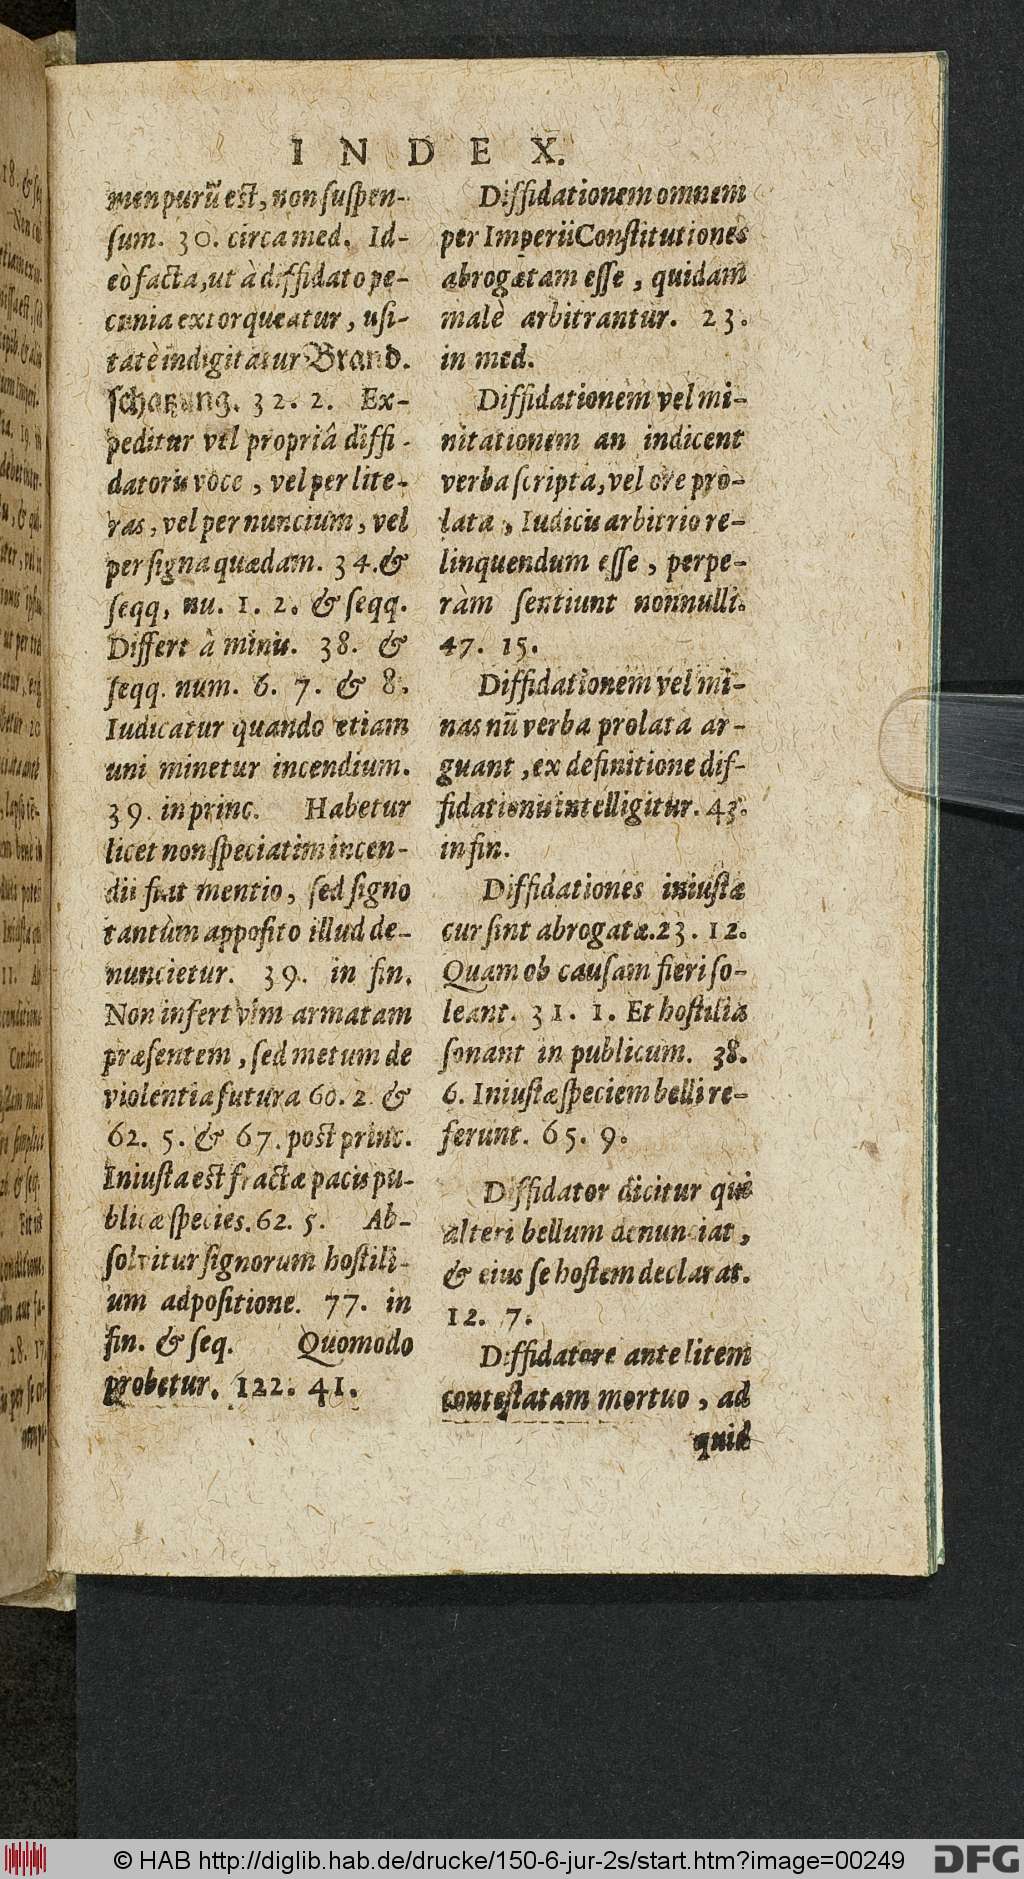 INDEX.
men purū est, non suspen-
sum. 30. circa med. Id-
eò facta, ut à diffidato pe-
cunia extorqueatur, usi-
tatè indigitatur Brand.
schatzung. 32. 2. Ex-
peditur vel propriâ diffi-
datoris voce, vel per lite-
ras, vel per nuncium, vel
per signa quædam. 34. &
seqq, nu. 1. 2. & seqq.
Differt à minis. 38. &
seqq. num. 6. 7. & 8.
Iudicatur quando etiam
uni minetur incendium.
39. in princ. Habetur
licet non speciatim incen-
dii fiat mentio, sed signo
tantùm apposito illud de-
nuncietur. 39. in fin.
Non infert vim armatam
præsentem, sed metum de
violentia futura 60. 2. &
62. 5. & 67. post princ.
Iniusta est fractæ pacis pu-
blicæ species. 62. 5. Ab-
solvitur signorum hostili-
um adpositione. 77. in
fin. & seq. Quomodo
probetur. 122. 41.
Diffidationem omnem
per Imperii Constitutiones
abrogatam esse, quidam
malè arbitrantur. 23.
in med.
Diffidationem vel mi-
nitationem an indicent
verba scripta, vel ore pro-
lata, Iudicis arbitrio re-
linquendum esse, perpe-
ràm sentiunt nonnulli.
47. 15.
Diffidationem vel mi-
nas nū verba prolata ar-
guant, ex definitione dif-
fidationis intelligitur. 43.
in fin.
Diffidationes iniustæ
cur sint abrogatæ. 23. 12.
Quam ob causam fieri so-
leant. 31. 1. Et hostilia
sonant in publicum. 38.
6. Iniustæ speciem belli re-
ferunt. 65. 9.
Diffidator dicitur qui
alteri bellum denunciat,
& eius se hostem declarat.
12. 7.
Diffidatore ante litem
contestatam mortuo, ad
quid
© HAB http://diglib.hab.de/drucke/150-6-jur-2s/start.htm?image=00249
DFG